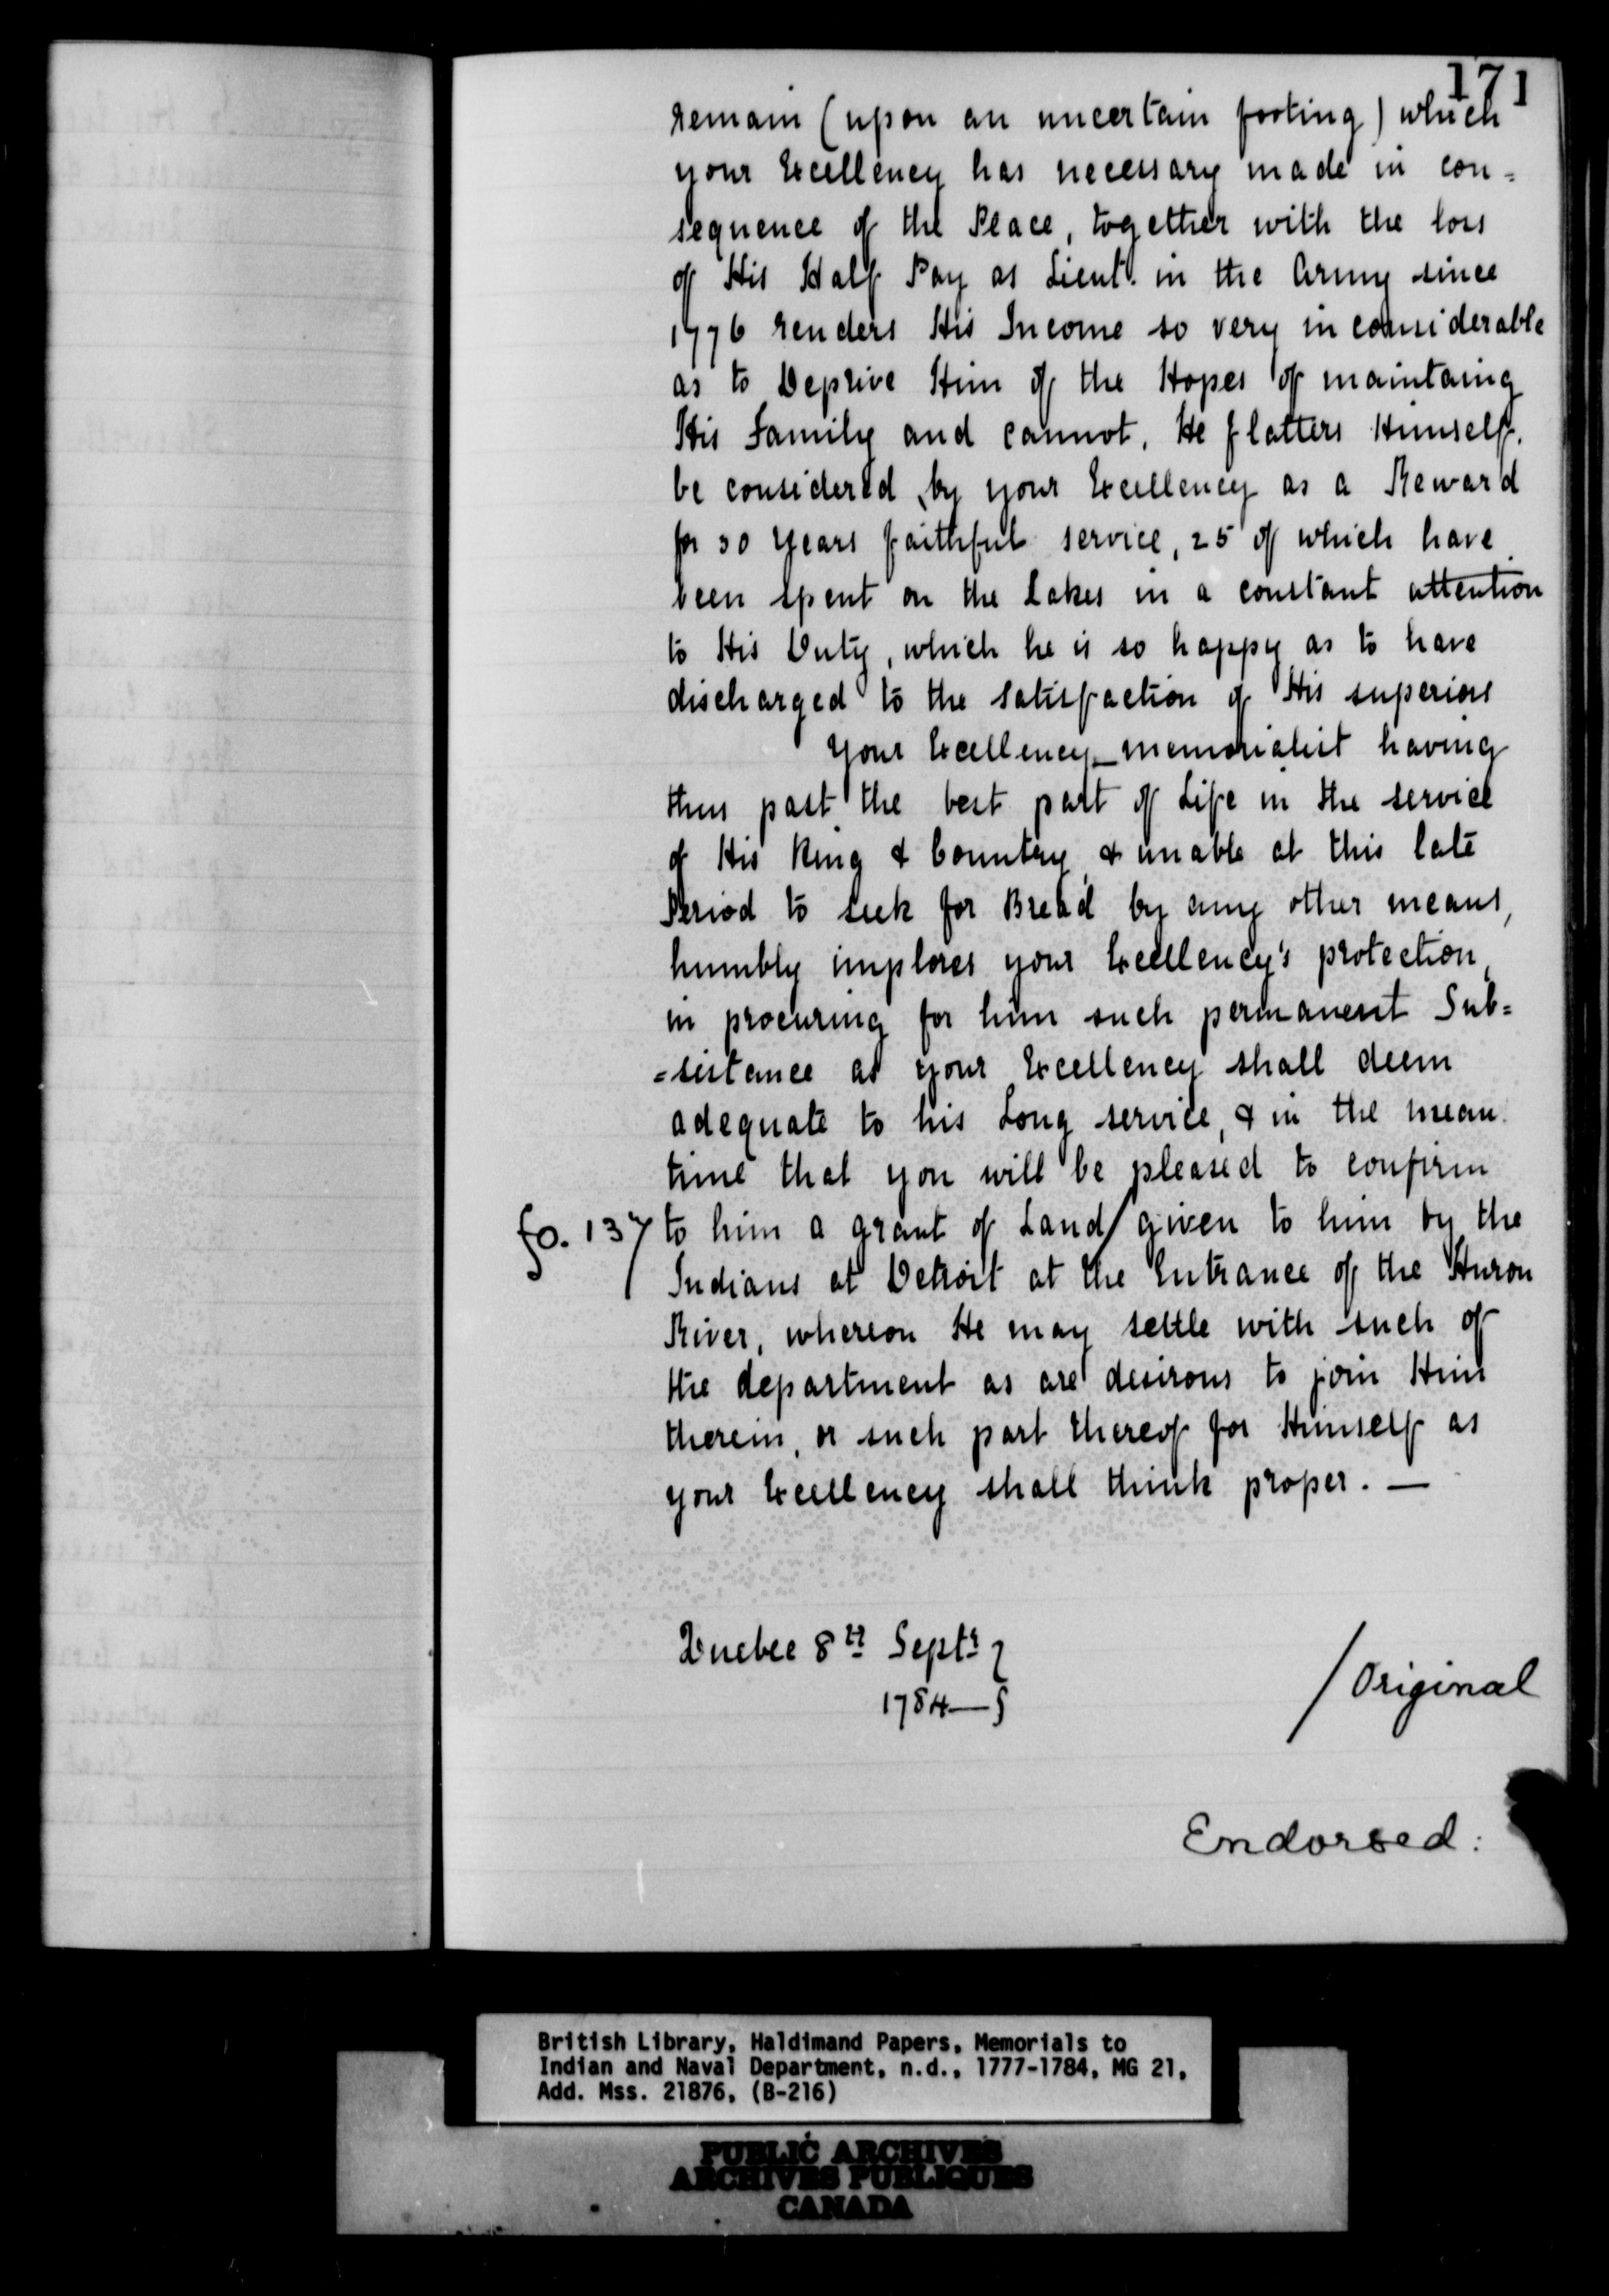 171
remain (upon an uncertain footing) which
your Excellency has necessary made in con-
sequence of the Peace, together with the loss
of His Half Pay as Lieut. in the Army since
1776 renders His Income so very inconsiderable
as to Deprive Him of the Hopes of maintaing
His Family and cannot, He flatters Himself,
be considered by your Excellency as a Reward
for 30 years faithful service, 25 of which have
been spent on the Lakes in a constant attention
to His Duty, which he is so happy as to have
discharged to the satisfaction of His superiors
Your Excellency memorialist having
thus past the best part of Life in the service
of His King & Country & unable at this late
Period to seek for Bread by any other means,
humbly implores your Excellency's protection,
in procuring for him such permanent Sub=
=sistance as your Excellency shall deem
adequate to his Long service, & in the mean
time that you will be pleased to confirm
fo. 137 to him a grant of Land/ given to him by the
Indians at Detroit at the Entrance of the Huron
River, whereon He may settle with such of
the department as are desirous to join Him
therein, or such part thereof for Himself as
your Excellency shall think proper. —
Quebec 8th Septr }
1784— }
/Original
Endorsed:
British Library, Haldimand Papers, Memorials to
Indian and Naval Department, n.d., 1777-1784, MG 21,
Add. Mss. 21876, (B-216)
PUBLIC ARCHIVES
ARCHIVES PUBLIQUES
CANADA